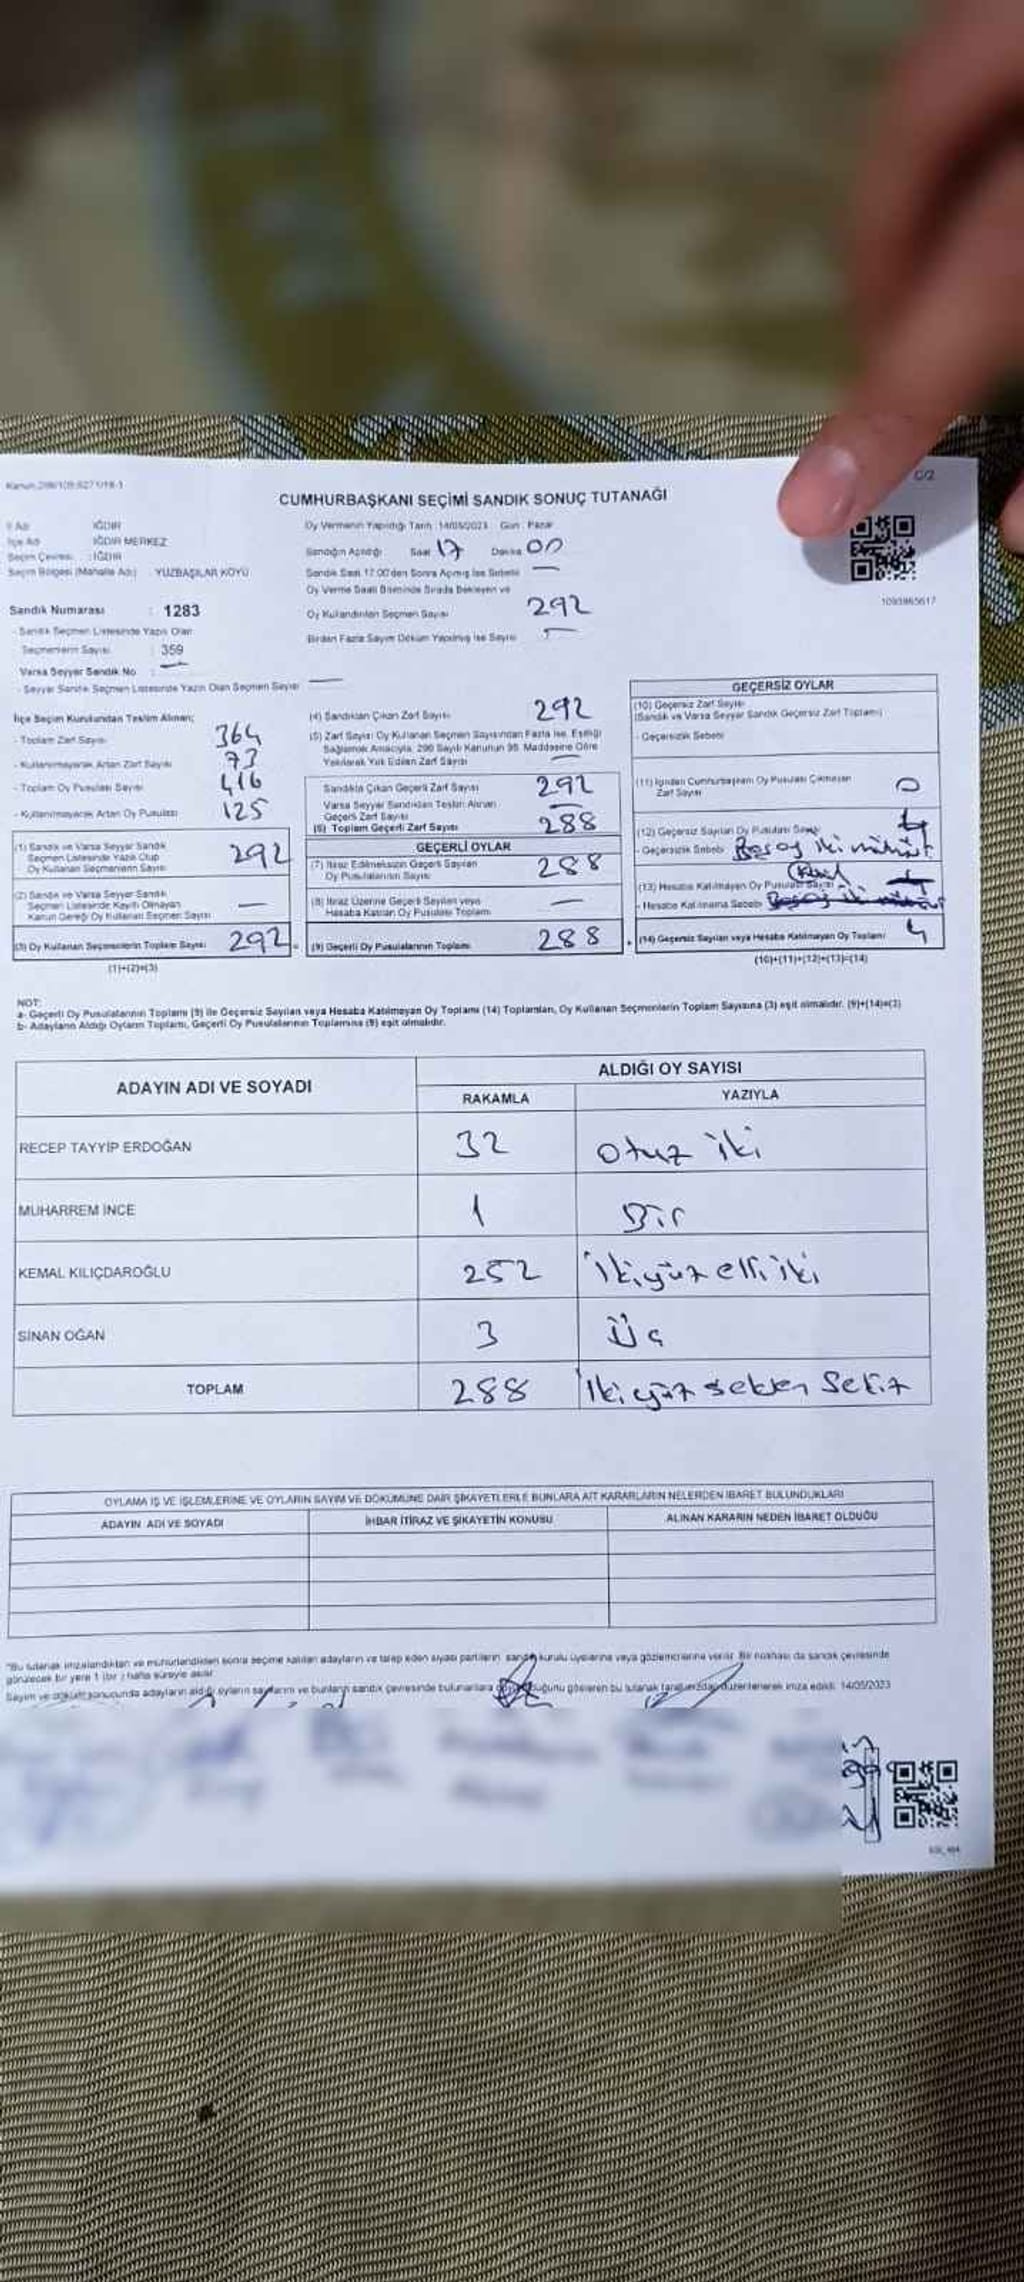 CUMHURBAŞKANI SEÇİMİ SANDIK SONUÇ TUTANAĞI
C/2
İl Adı : IĞDIR
İlçe Adı : IĞDIR MERKEZ
Seçim Çevresi : IĞDIR
Seçim Bölgesi (Mahalle Adı) : YÜZBAŞILAR KÖYÜ
Sandık Numarası : 1283
- Sandık Seçmen Listesinde Yazılı Olan
Seçmenlerin Sayısı : 359
Varsa Seyyar Sandık No : —
- Seyyar Sandık Seçmen Listesinde Yazılı Olan Seçmen Sayısı —
Oy Vermenin Yapıldığı Tarih : 14/05/2023 Gün : Pazar
Sandığın Açıldığı Saat 17 Dakika 00
Sandık Saat 17:00'den Sonra Açılmış İse Sebebi —
Oy Verme Saati Bitiminde Sırada Bekleyen ve
Oy Kullandırılan Seçmen Sayısı 292
Birden Fazla Sayım Döküm Yapılmış İse Sayısı —
1093965617
İlçe Seçim Kurulundan Teslim Alınan;
- Toplam Zarf Sayısı 364
- Kullanılmayarak Artan Zarf Sayısı 73
- Toplam Oy Pusulası Sayısı 416
- Kullanılmayarak Artan Oy Pusulası 125
(1) Sandık ve Varsa Seyyar Sandık
Seçmen Listesinde Yazılı Olup
Oy Kullanan Seçmenlerin Sayısı 292
(2) Sandık ve Varsa Seyyar Sandık
Seçmen Listesinde Kayıtlı Olmayan
Kanun Gereği Oy Kullanan Seçmen Sayısı —
(3) Oy Kullanan Seçmenlerin Toplam Sayısı 292
(1)+(2)=(3)
(4) Sandıktan Çıkan Zarf Sayısı 292
(5) Zarf Sayısı Oy Kullanan Seçmen Sayısından Fazla İse, Eşitliği
Sağlamak Amacıyla, 298 Sayılı Kanunun 98. Maddesine Göre
Yakılarak Yok Edilen Zarf Sayısı —
Sandıkta Çıkan Geçerli Zarf Sayısı 292
Varsa Seyyar Sandıktan Teslim Alınan
Geçerli Zarf Sayısı —
(6) Toplam Geçerli Zarf Sayısı 288
GEÇERLİ OYLAR
(7) İtiraz Edilmeksizin Geçerli Sayılan
Oy Pusulalarının Sayısı 288
(8) İtiraz Üzerine Geçerli Sayılan veya
Hesaba Katılan Oy Pusulası Toplamı —
(9) Geçerli Oy Pusulalarının Toplamı 288
GEÇERSİZ OYLAR
(10) Geçersiz Zarf Sayısı
(Sandık ve Varsa Seyyar Sandık Geçersiz Zarf Toplamı)
- Geçersizlik Sebebi
(11) İçinden Cumhurbaşkanı Oy Pusulası Çıkmayan
Zarf Sayısı 0
(12) Geçersiz Sayılan Oy Pusulası Sayısı 4
- Geçersizlik Sebebi
(13) Hesaba Katılmayan Oy Pusulası Sayısı
- Hesaba Katılmama Sebebi
(14) Geçersiz Sayılan veya Hesaba Katılmayan Oy Toplamı 4
(10)+(11)+(12)+(13)=(14)
NOT:
a- Geçerli Oy Pusulalarının Toplamı (9) ile Geçersiz Sayılan veya Hesaba Katılmayan Oy Toplamı (14) Toplamları, Oy Kullanan Seçmenlerin Toplam Sayısına (3) eşit olmalıdır. (9)+(14)=(3)
b- Adayların Aldığı Oyların Toplamı, Geçerli Oy Pusulalarının Toplamına (9) eşit olmalıdır.
ADAYIN ADI VE SOYADI
ALDIĞI OY SAYISI
RAKAMLA YAZIYLA
RECEP TAYYİP ERDOĞAN 32 otuz iki
MUHARREM İNCE 1 Bir
KEMAL KILIÇDAROĞLU 252 ikiyüz elli iki
SİNAN OĞAN 3 Üç
TOPLAM 288 ikiyüz seksen sekiz
OYLAMA İŞ VE İŞLEMLERİNE VE OYLARIN SAYIM VE DÖKÜMÜNE DAİR ŞİKAYETLERLE BUNLARA AİT KARARLARIN NELERDEN İBARET BULUNDUKLARI
ADAYIN ADI VE SOYADI İHBAR İTİRAZ VE ŞİKAYETİN KONUSU ALINAN KARARIN NEDEN İBARET OLDUĞU
"Bu tutanak imzalandıktan ve mühürlendikten sonra seçime katılan adayların ve talep eden siyasi partilerin sandık kurulu üyelerine veya gözlemcilerine verilir. Bir nüshası da sandık çevresinde
görülecek bir yere 1 (bir) hafta süreyle asılır.
Sayım ve döküm sonucunda adayların aldığı oyların sayılarını ve bunların sandık çevresinde bulunanlara
bu tutanak tarafımızdan düzenlenerek imza edildi. 14/05/2023